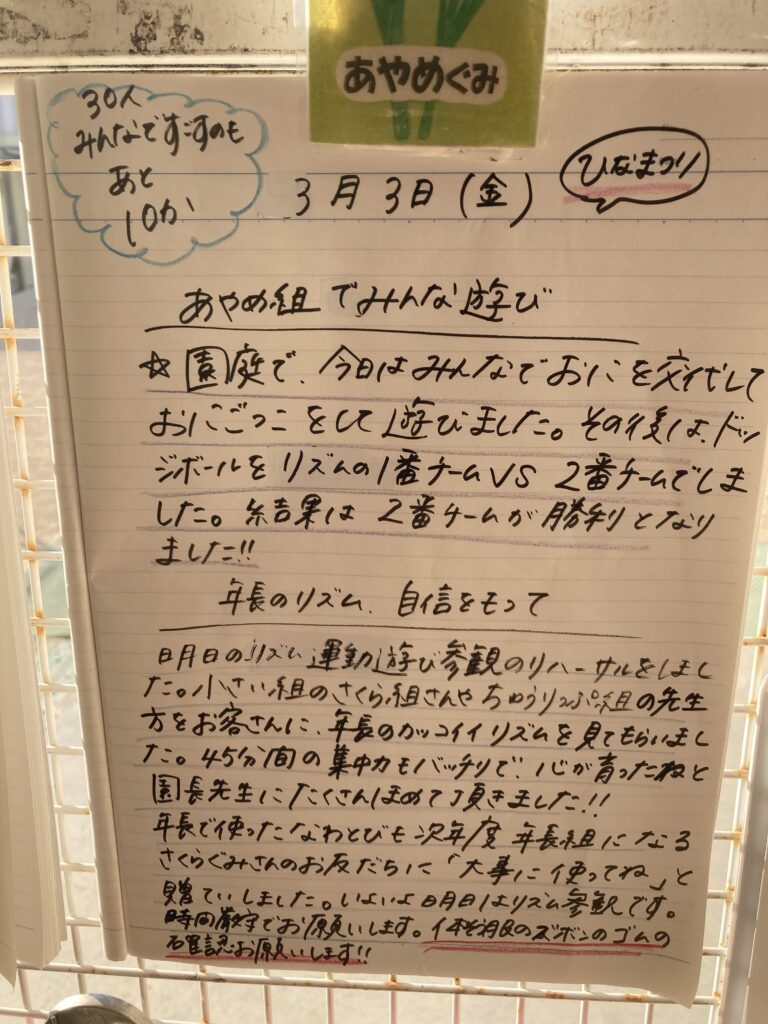 あやめぐみ
30人
みんなですごすのも
あと
10か
3月3日(金)
ひなまつり
あやめ組でみんな遊び
☆園庭で、今日はみんなでおにを交代して
おにごっこをして遊びました。その後は、ドッ
ジボールをリズムの1番チームVS 2番チームでしま
した。結果は2番チームが勝利となり
ました!!
年長のリズム、自信をもって
明日のリズム運動遊び参観のリハーサルをしまし
た。小さい組のさくら組さんやちゅうりっぷ組の先生
方をお客さんに、年長のカッコイイリズムを見てもらいまし
た。45分間の集中力もバッチリで、心が育ったねと
園長先生にたくさんほめて頂きました!!
年長で使ったなわとびも次年度 年長組になる
さくらぐみさんのお友だちに「大事に使ってね」と
贈ていしました。いよいよ明日はリズム参観です。
時間厳守でお願いします。体操服のズボンのゴムの
確認お願いします!!